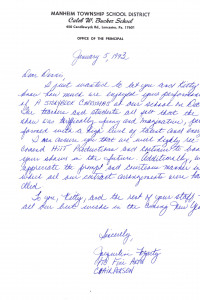 MANHEIM TOWNSHIP SCHOOL DISTRICT
Calvin W. Bucher School
450 Candlewyck Rd., Lancaster, Pa. 17601
OFFICE OF THE PRINCIPAL
January 5, 1992
Dear
I just wanted to let you and Kitty
know how much we enjoyed your performance
of A STORYBOOK CHRISTMAS at our school in Dec
Our teachers and students all felt that the
show was delightfully funny and imaginative, per-
formed with a high level of talent and energy
I can assure you that we will highly rec
ommend Hill Productions and continue to book
your shows in the future. Additionally, we
appreciate the prompt and courteous manner in
which all our contract arrangements were han
dled.
To you, Kitty, and the rest of your staff,
all our best wishes in the coming New Year
Sincerely,
Jacqueline
PTO Fine Arts
CHAIRPERSON